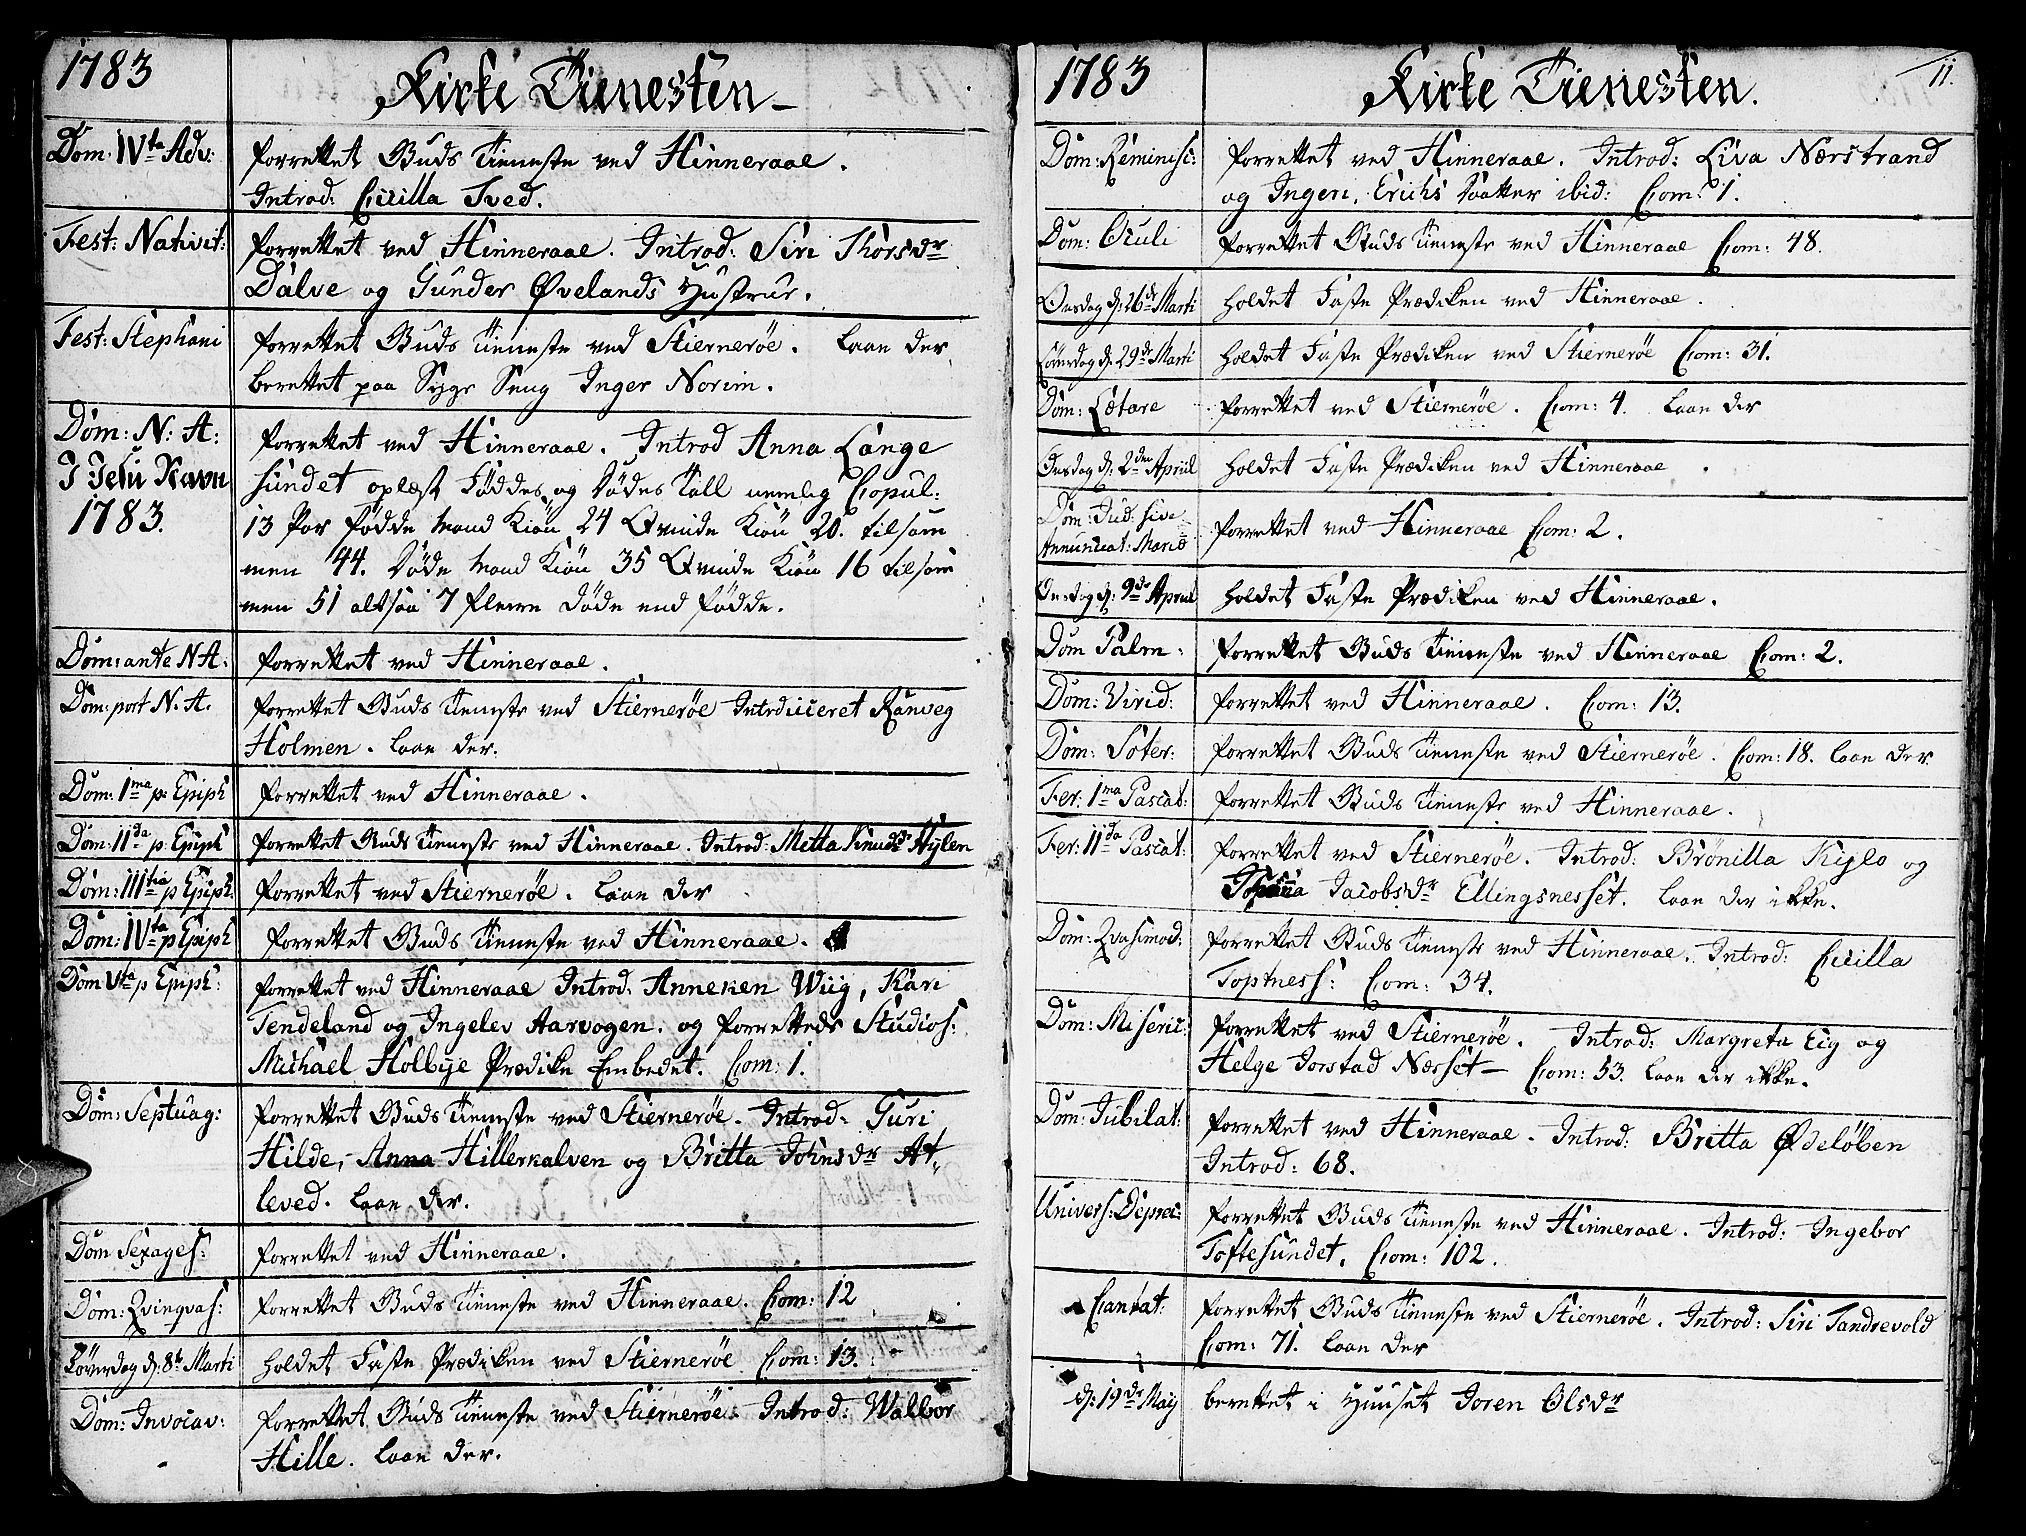 1783
Kirke Tienesten
Dom: IV ta Adv: forrettet Guds Tieneste ved Hinneraae.
Introd: Cicilla Tved.
Fest: Nativit: forrettet ved Hinneraae. Introd: Siri Thorsdr
Dalve og Gunder Øvelands Hustrue.
Fest: Stephani forrettet Guds Tieneste ved Stiernerøe. laae der
berettet paa Syge Seng Inger Norim.
Dom: N: A: forrettet ved Hinneraae. Introd Anna Lange
I Jesu Navn sundet oplæst Føddes og Dødes Tall nemlig Copul:
1783. 13 Par fødde Mand Kiøn 24 Qvinde Kiøn 20. tilsam
men 44. Døde Mand Kiøn 35 Qvinde Kiøn 16 tilsam
men 51 altsaa 7 fleere døde end fødde.
Dom: ante N A: forrettet ved Hinneraae.
Dom: post N. A. forrettet Guds Tieneste ved Stiernerøe Introduceret Ranveg
Holmen. laae der.
Dom: 1ma p: Epiph forrettet ved Hinneraae.
Dom: IIda p: Epiph forrettet Guds Tieneste ved Hinneraae. Introd: Metta Knudsdr Hylen
Dom: IIItia p Epiph: forrettet ved Stiernerøe. laae der
Dom: IVta p Epiph forrettet Guds Tieneste ved Hinneraae.
Dom Vta p Epiph: forrettet ved Hinneraae Introd: Anneken Wiig, Kari
Tendeland og Ingelev Aarvogen. og forrettede Studios:
Michael Holbye Prædike Embedet. Com: 1.
Dom: Septuag: forrettet Guds Tieneste ved Stiernerøe. Introd: Guri
Hilde, Anna Hillerkalven og Britta Johnsdr At-
leved. laae der.
Dom Sexages: forrettet ved Hinneraae.
Dom: Qvinqvas: forrettet Guds Tieneste ved Hinneraae. Com: 12
Løverdag d: 8t Marti holdet Faste Prædiken ved Stiernerøe Com: 13.
Dom: Invocav: forrettet Guds Tieneste ved Stiernerøe. Introd: Walbor
Hille. laae der.
1783
Kirke Tienesten.
11.
Dom: Reminisc: forrettet ved Hinneraae. Introd: Liva Nærstrand
og Ingeri Erichs Daatter ibid: Com: 1.
Dom: Oculi forrettet Guds Tieneste ved Hinneraae Com: 48.
Onsdag d: 26de Marti holdet Faste Prædiken ved Hinneraae.
Løverdag d: 29de Marti holdet Faste Prædiken ved Stiernerøe Com: 31.
Dom: Lætare forrettet ved Stiernerøe. Com: 4. laae der
Onsdag d: 2den Apriil holdet Faste Prædiken ved Hinneraae.
Dom: Jud: sive
Annunciat: Mariæ forrettet ved Hinneraae Com: 2.
Onsdag d: 9de Apriil holdet Faste Prædiken ved Hinneraae.
Dom Palm: forrettet Guds Tieneste ved Hinneraae Com: 2.
Dom: Virid: forrettet ved Hinneraae. Com: 13.
Dom: Soter: forrettet Guds Tieneste ved Stiernerøe. Com: 18. laae der
Fer: 1ma Pascat: forrettet Guds Tieneste ved Hinneraae.
Fer: IIda Pascat: forrettet ved Stiernerøe. Introd: Brønilla Kiglo og
Jacobsdr Ellingsnesset. laae der ikke.
Dom: Qvasimod: forrettet Guds Tieneste ved Hinneraae. Introd: Cicilla
Toptness: Com: 34.
Dom: Miseric: forrettet ved Stiernerøe. Introd: Margreta Eig og
Helge Jorstad Næsset Com: 53. laae der ikke.
Dom: Jubilat: forrettet ved Hinneraae. Introd: Britta Ødeløben
Introd: 68.
Univers: Deprec: forrettet Guds Tieneste ved Hinneraae. Introd: Ingebor
Toftesundet. Com: 102.
Cantat: forrettet Guds Tieneste ved Stiernerøe. Introd: Siri Tandrevold
Com: 71. laae der
d: 19de May berettet i Huuset Joren Olsdr